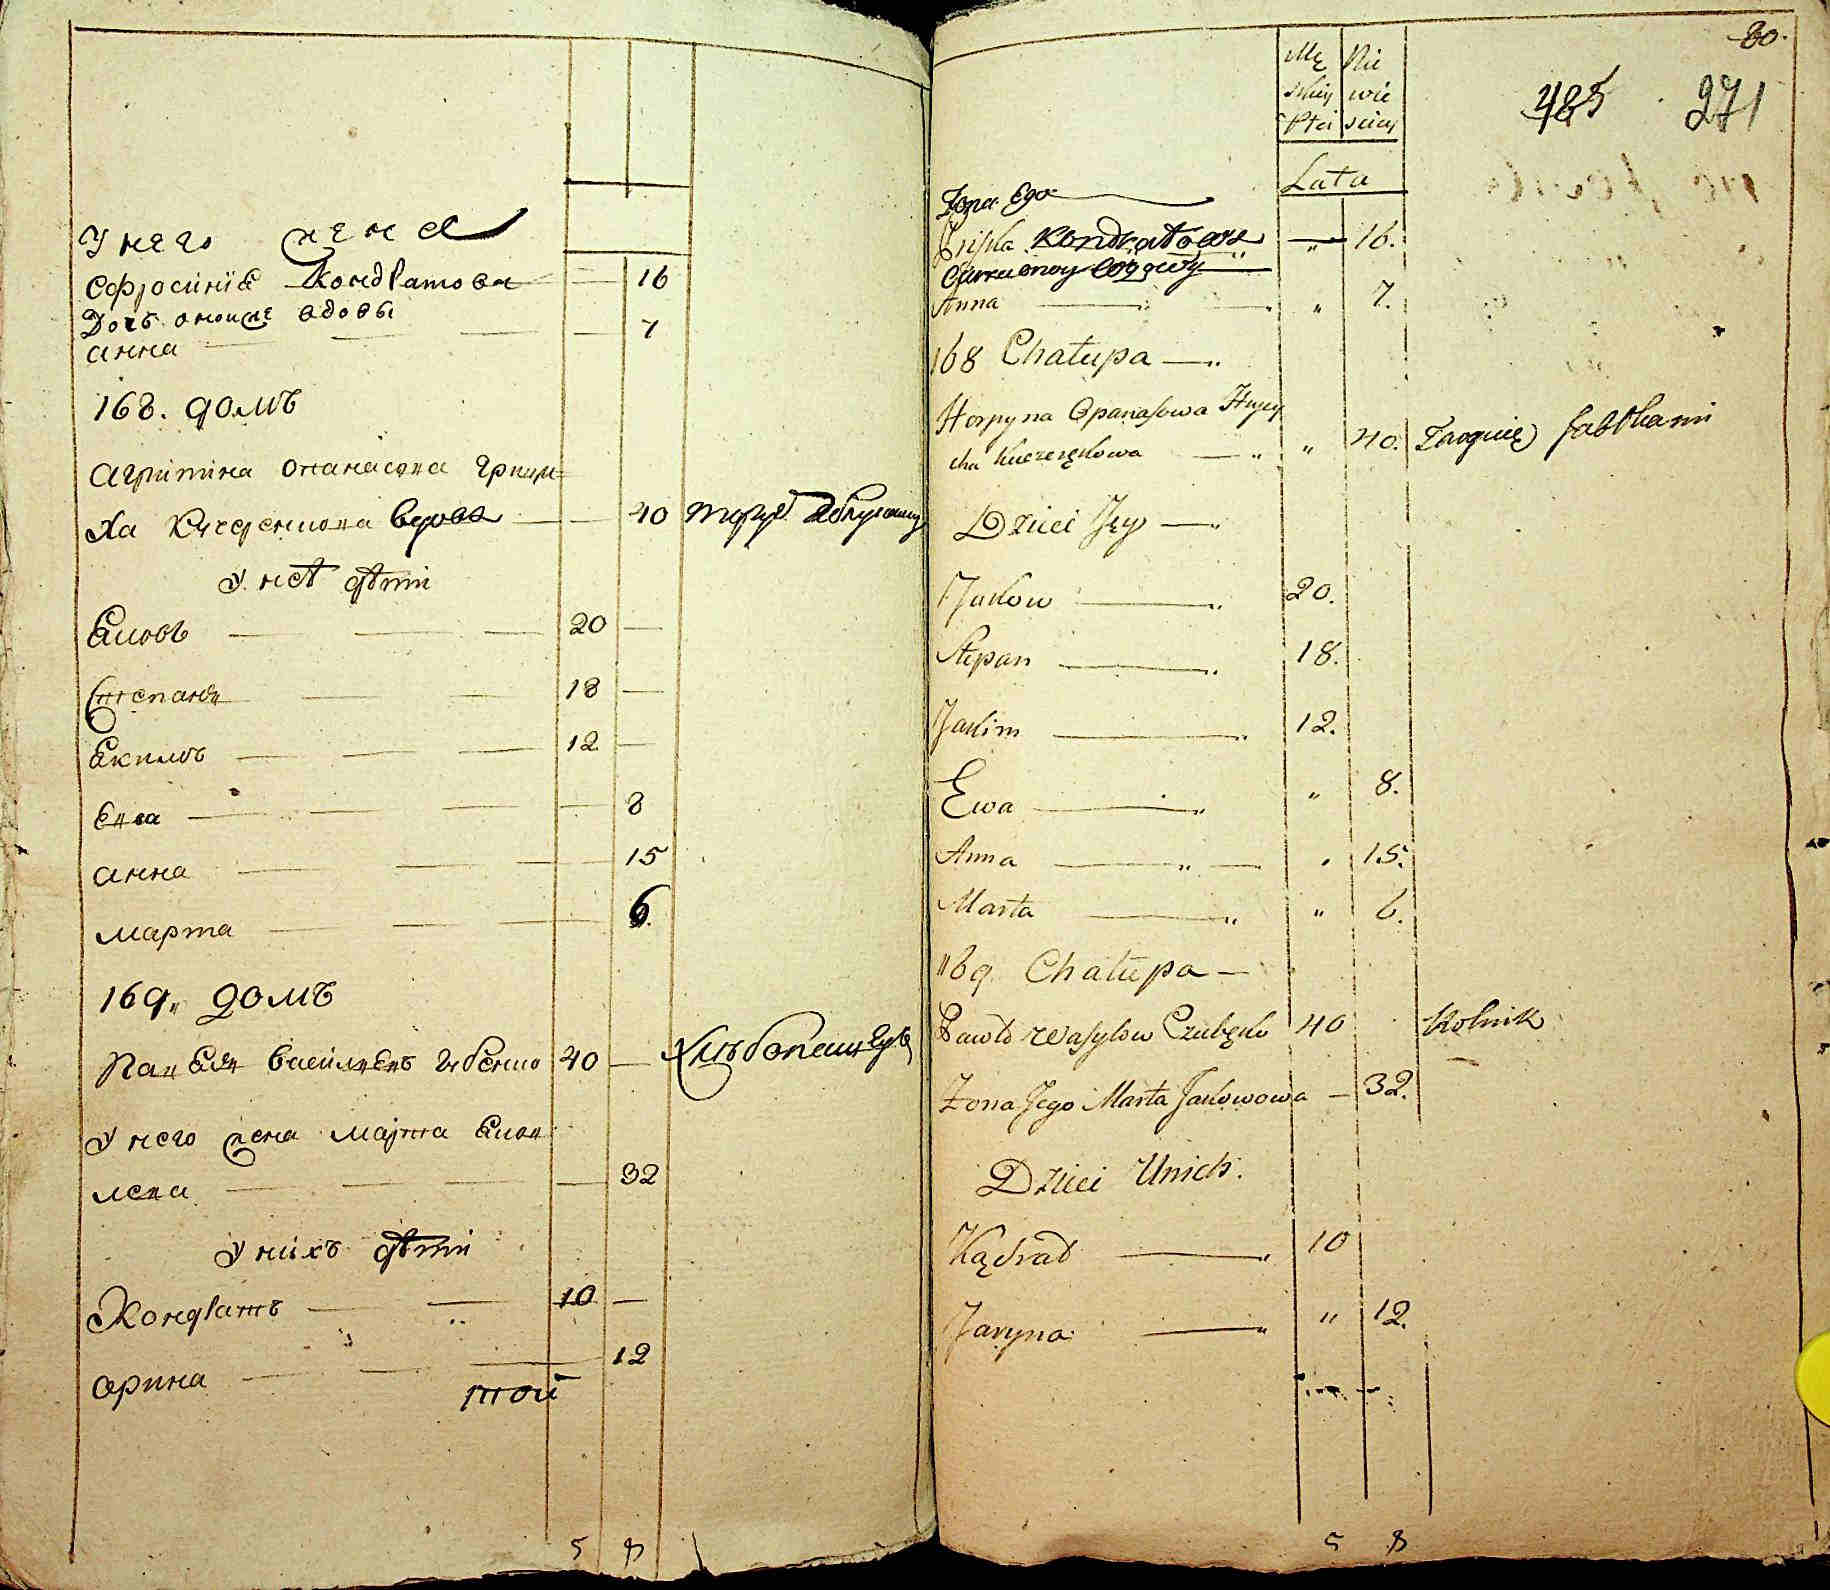 У него жена
Софросиніе Кондратова 16
Дочь оноиже вдовы
анна 7
168. домъ
Агрипина Опанасова Грицы
ха Кучеренкова вдова 40
У неѣ дѣти
Ековъ 20
Степанъ 18
Екимъ 12
Евва 8
анна 15
марта 6.
169. домъ
Павелъ Васильевъ Зубенко 40 Хлѣбопашецъ
У него жена марта Еков
лева 32
У нихъ дѣти
Кондратъ 10
орина 12
той
5 8
80.
Mę Nie
skiey wie
Płci sciey
485 271
Lata
Żona Ego
Pryska Kondratowa " 16.
Anna " 7.
168 Chałupa
Horpyna Opanasowa Hrycy
cha Kuczerękowa " 40. Targuię Jabłkami
Dzieci Jey
Jakow 20.
Stepan 18.
Jakim 12.
Ewa " 8.
Anna 15.
Marta " 6.
169 Chałupa
Pawło Wasylow Czubęko 40 Rolnik
Żona Jego Marta Jakowowa 32.
Dzieci Unich.
Kądrad 10
Jaryna " 12.
5 8